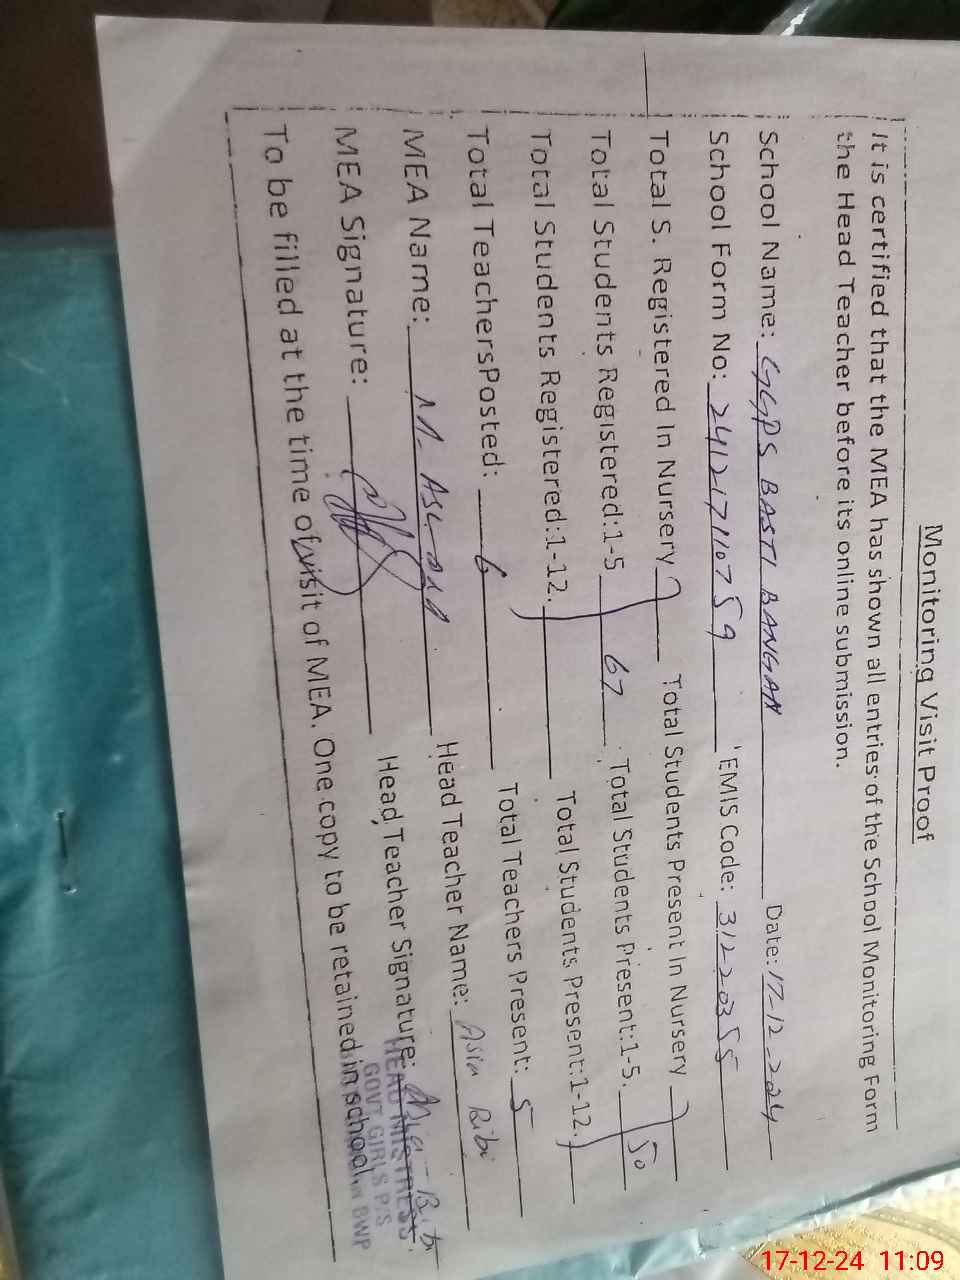 Monitoring Visit Proof
It is certified that the MEA has shown all entries of the School Monitoring Form
the Head Teacher before its online submission.
School Name: GGPS BASTI BANGAN Date: 17-12-2024
School Form No: 24121711075 9 EMIS Code: 31220355
Total S. Registered In Nursery Total Students Present In Nursery
Total Students Registered:1-5 67 Total Students Present:1-5. 50
Total Students Registered:1-12. Total Students Present:1-12.
Total TeachersPosted: 6 Total Teachers Present: 5
MEA Name: M. Head Teacher Name: Asia Bibi
MEA Signature: Head Teacher Signature: Asia Bibi
HEAD MISTRESS
GOVT GIRLS P/S
BWP
To be filled at the time of visit of MEA. One copy to be retained in school.
17-12-24 11:09